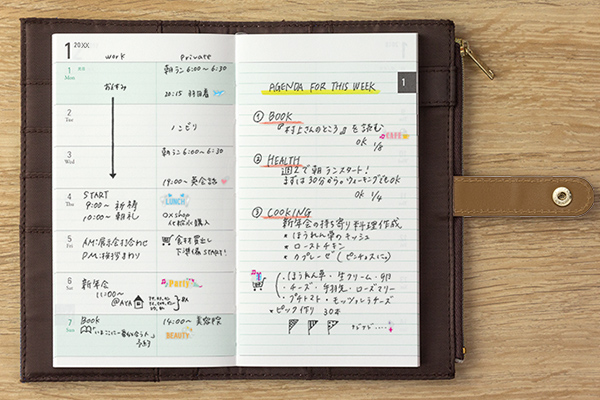 1 20XX
work private
1 Mon 朝ラン 6:00〜6:30
おやすみ
20:15 羽田着
2 Tue
3 Wed 朝ラン 6:00〜6:30
19:00〜 英会話
4 Thu START LUNCH
9:00〜 祈祷
10:00〜 朝礼 購入
5 Fri 食材買出し
下準備 START!
6 Sat 新年会 Party
11:00〜
@AYA
7 Sun BOOK 14:00〜 美容院
BEAUTY
1
AGENDA FOR THIS WEEK
① BOOK
『村上さんのところ』を読む
CAFE
OK 1/8
② HEALTH
週2で朝ランスタート!
まずは30分から。ウォーキングでもOK
OK 1/4
③ COOKING
新年会の持ち寄り料理作成
* ほうれん草のキッシュ
* ローストチキン
* カプレーゼ(ピンチョスに。)
・ほうれん草・生クリーム・卵
・チーズ・手羽元・ローズマリー
・プチトマト・モッツァレラチーズ
* ピック作り 30本